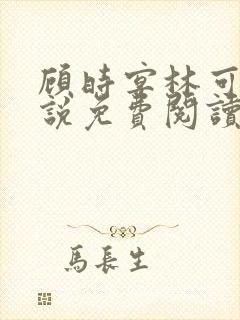 顾時宴林可
說免費閱讀
馬長生